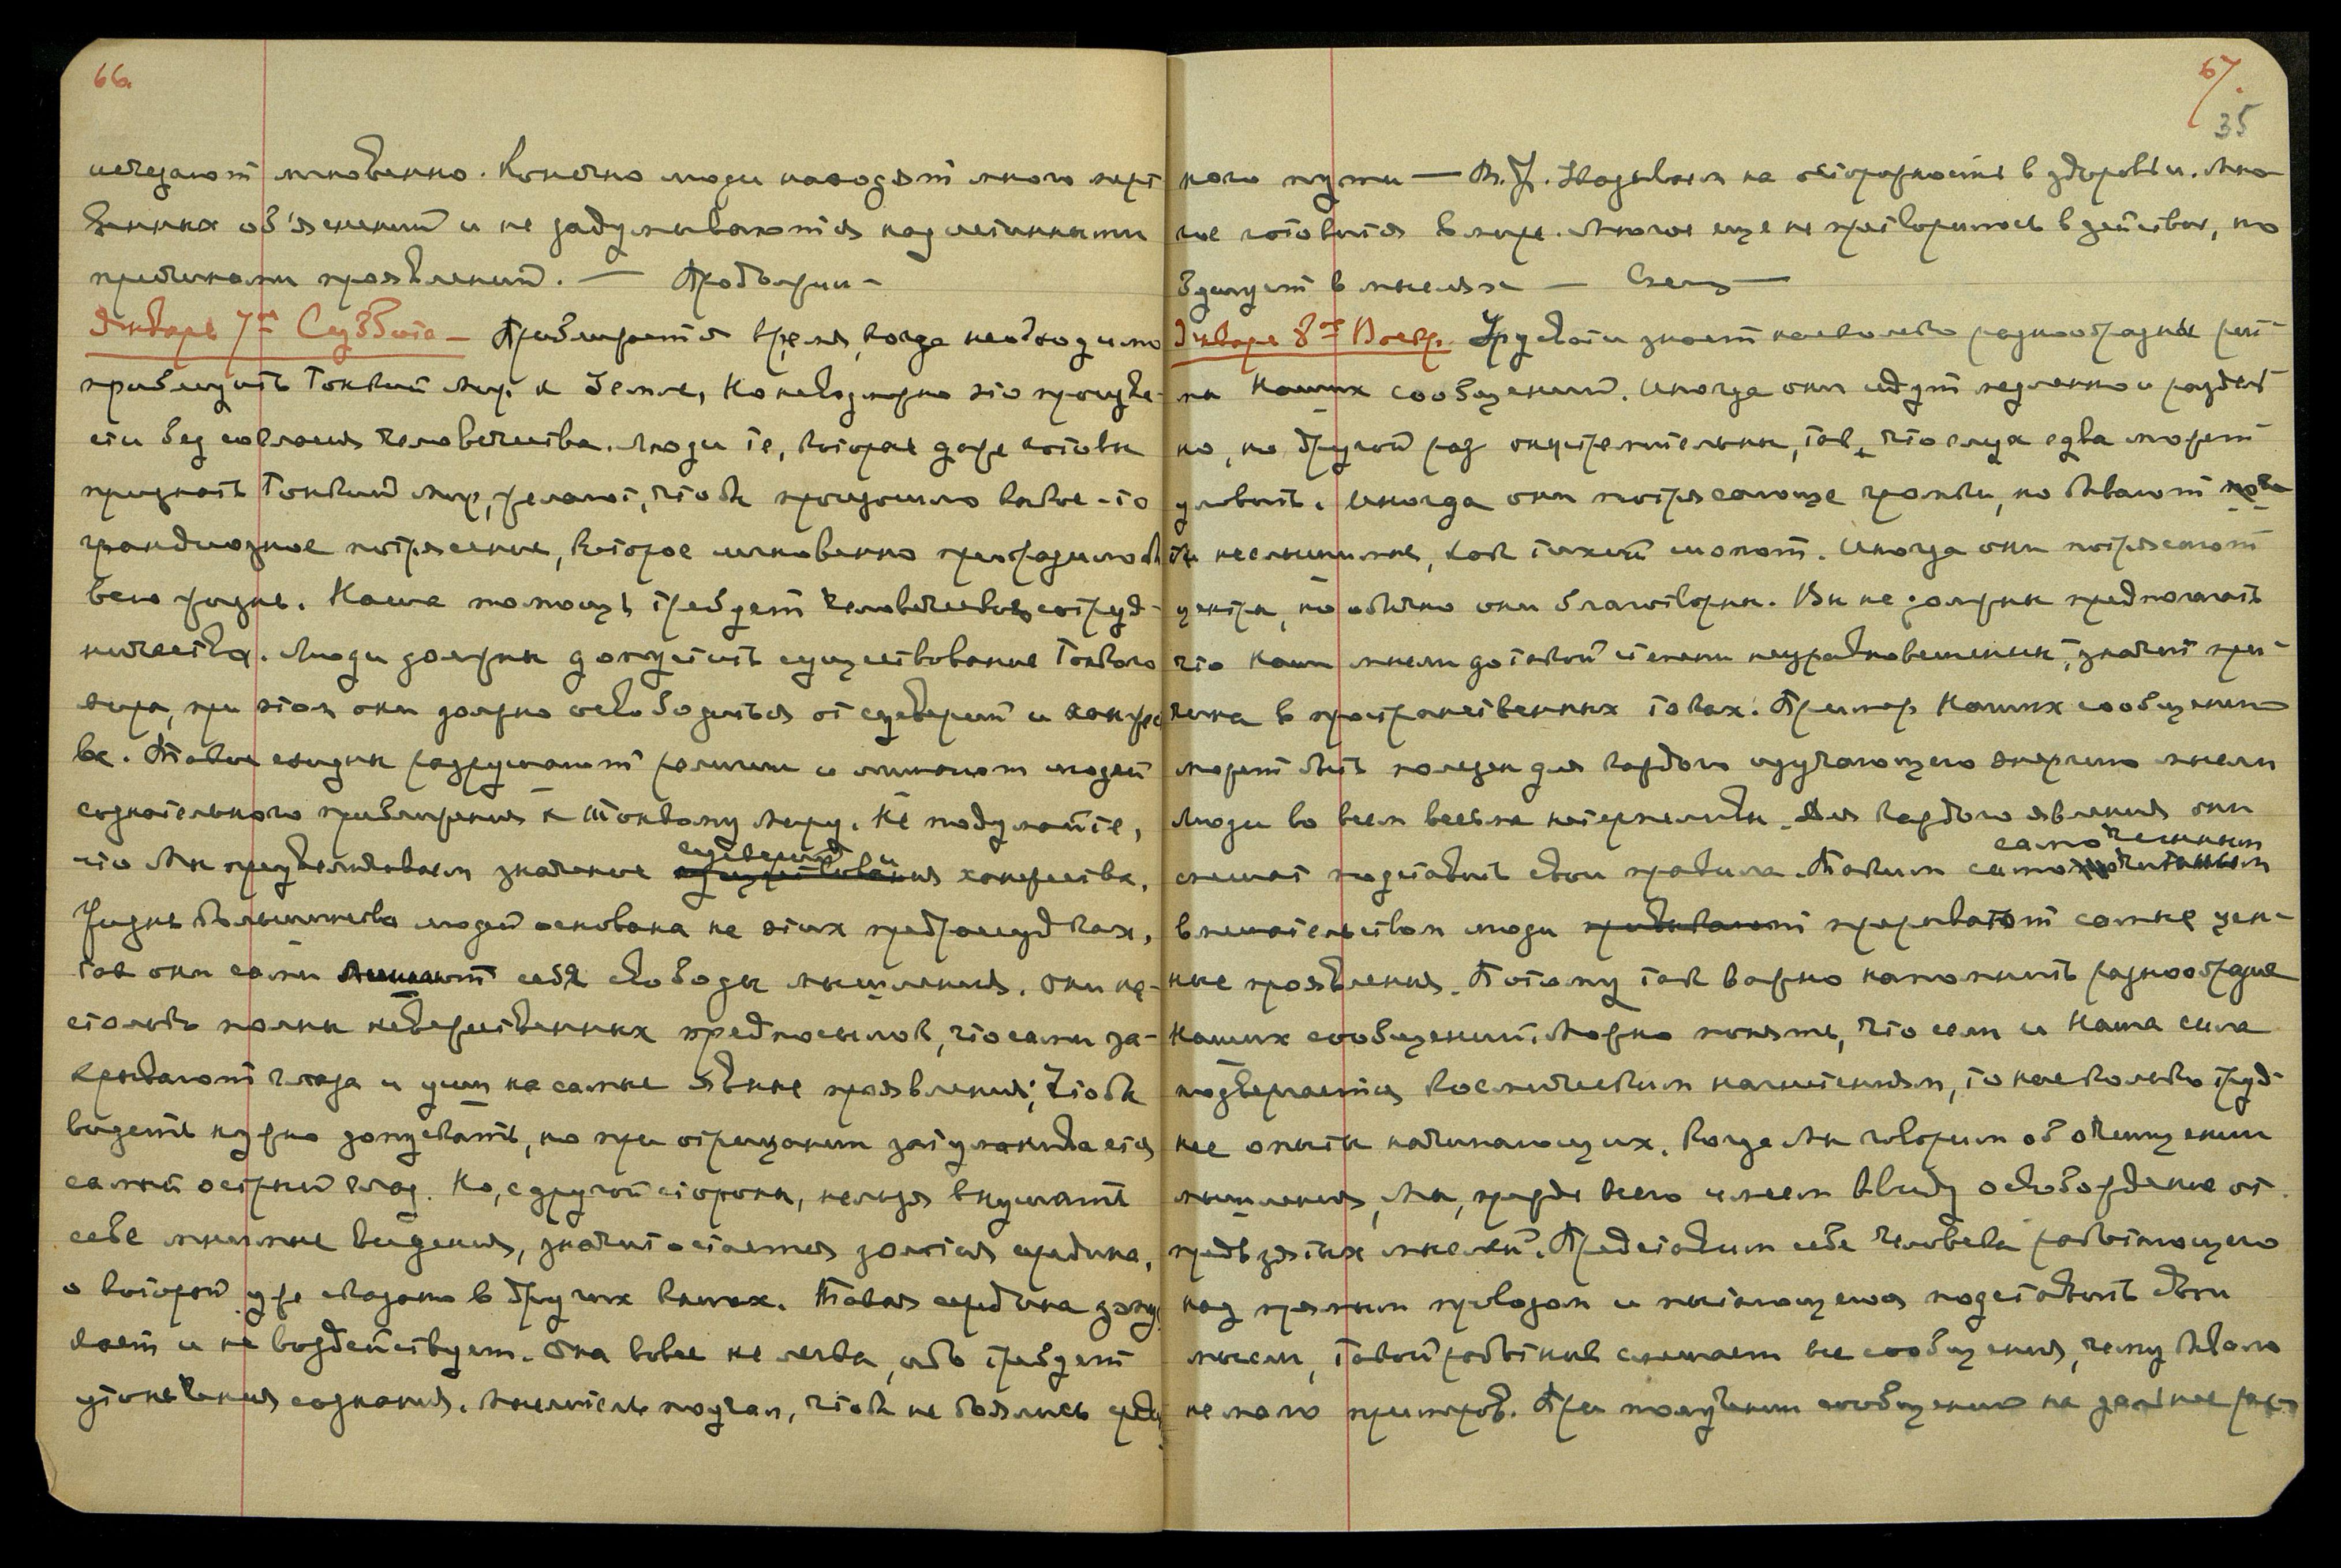 66.
исчезают мгновенно. Конечно люди находят много
об'яснений и не задумываются над истинными
причинами проявлений. —
Январь 7ое Суббота — Приближается время, когда необходимо
приблизить Тонкий Мир к Земле, но невозможно это произве-
сти без согласия человечества. Люди те, которые даже готовы
признать Тонкий Мир, желают, чтобы произошло какое-то
грандиозное потрясение, которое мгновенно преобразило бы
всю жизнь. Наша помощь требует человеческого сотруд-
ничества. Люди должны допустить существование Тонкого
Мира, при этом они должны освободиться от суеверий и
Такие ехидны разрушают и лишают людей
сознательного приближения к Тонкому Миру. Не подумайте,
суеверий и
что Мы преувеличиваем значение ханжества.
Жизнь большинства людей основана на этих предрассудках,
так они сами лишают себя свободы мышления. Они на-
столько полны невежественных предпосылок, что сами за-
крывают глаза и уши на самые явные проявления; чтобы
видеть нужно допускать, но при отрицании затуманивается
самый острый глаз. Но, с другой стороны, нельзя внушать
себе мнимые видения, значит остается золотая средина,
о которой уже сказано в других книгах. Такая средина допу
скает и не воздействует. Она вовсе не легка, ибо требует
утончения сознания. Мыслитель поучал, чтобы не боялись среди
67.
35
ного пути — на осторожность в здоровьи. Мно-
гое готовится в мире. Многое еще не претворилось в действие, но
в мыслях —
Январь 8ое Воскр. Урусвати знает насколько разнообразны рит-
мы Наших сообщений. Иногда они идут медленно и раздель
но, но другой раз они стремительны, так что слух едва может
уловить. Иногда они потрясающе громки, но бывают
неслышимые, как тихий шопот. Иногда они потрясают
центры, но обычно они благотворны. Вы не должны предполагать
что Наши мысли до такой степени неуравновешенны, значит при-
чина в пространственных токах. Пример Наших сообщений
может быть полезен для каждого изучающего энергию мысли
Люди во всем весьма нетерпеливы. Для каждого явления они
самочинным
спешат подставить свои правила. Таким
вмешательством люди прерывают самые цен-
ные проявления. Потому так важно напомнить разнообразие
Наших сообщений. Можно понять, что если и Наша сила
подвергается космическим то насколько труд-
нее опыты начинающих. Когда Мы говорим об очищении
мышления, Мы, прежде всего имеем ввиду освобождение от
предвзятых мыслей. Представим себе человека работающего
над прямым проводом и пытающегося подставить свои
мысли, такой работник смешает все сообщения, чему бывало
не мало примеров. При получении сообщений на дальнее